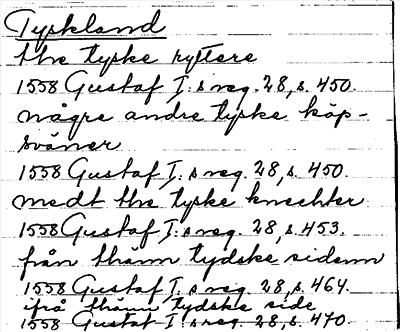 Tyskland
the tyske ryttere
1558 Gustaf I:s reg. 28, s. 450.
några andre tyske köp-
svåner
1558 Gustaf I:s reg. 28, s. 450.
medt the tyske knechter
1558 Gustaf I:s reg. 28, s. 453.
från thänn tydske sidenn
1558 Gustaf I:s reg. 28, s. 464.
ifrå thänn tydske side
1558 Gustaf I:s reg. 28, s. 470.